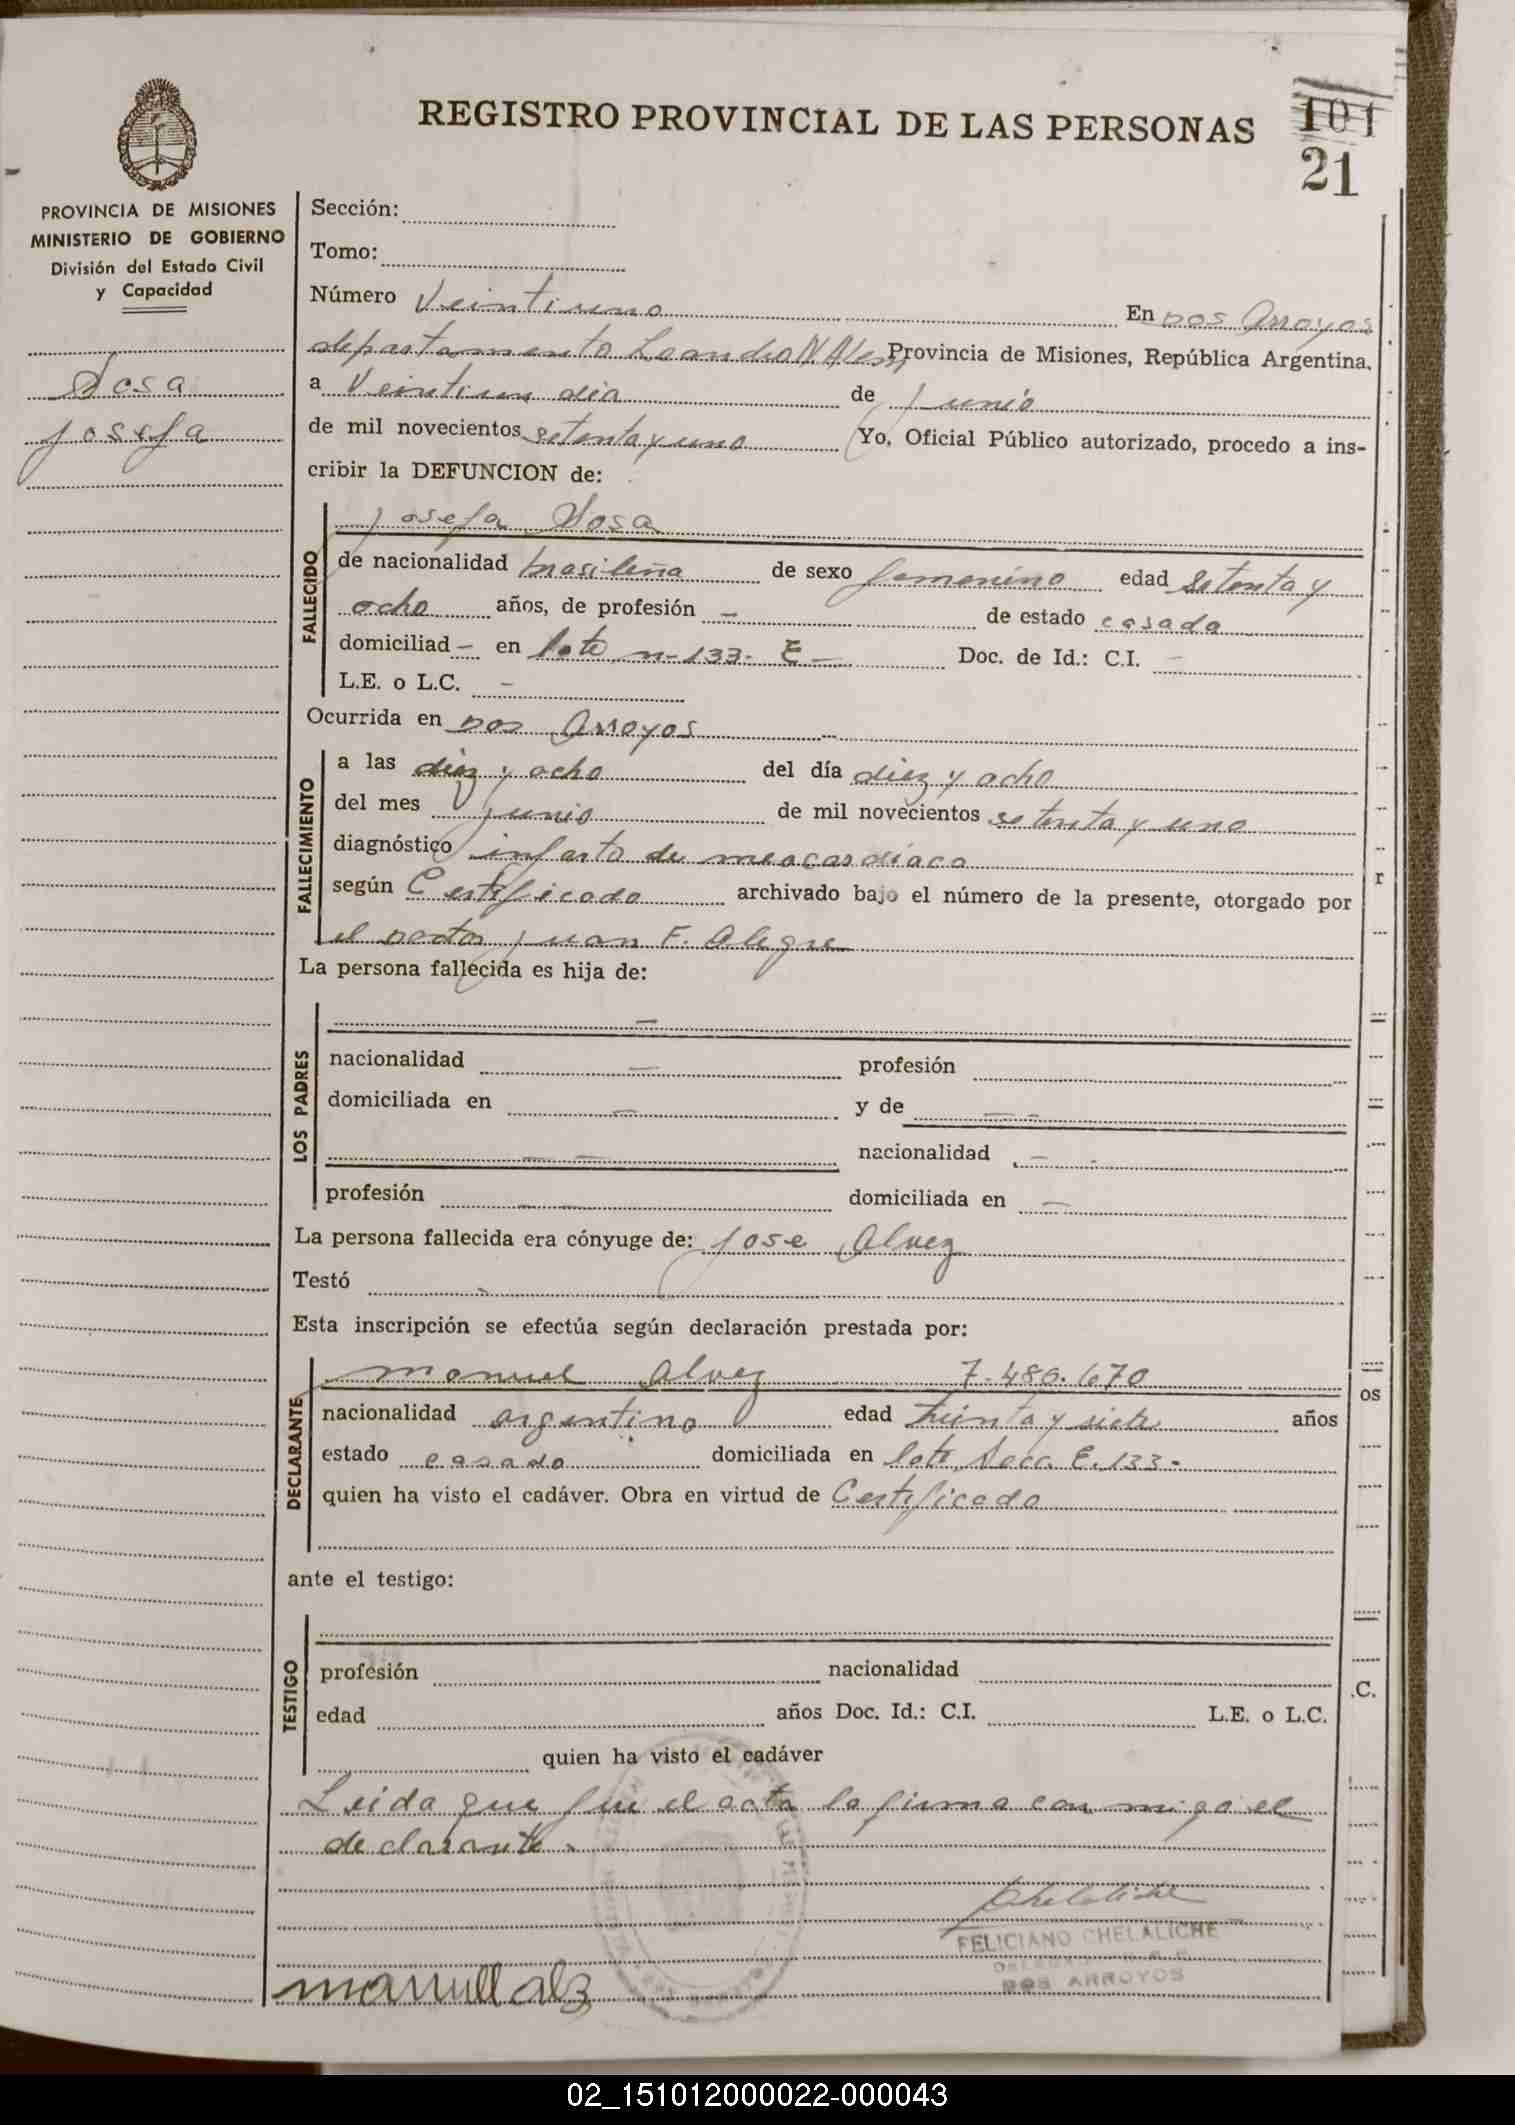 REGISTRO PROVINCIAL DE LAS PERSONAS
101
21
PROVINCIA DE MISIONES
MINISTERIO DE GOBIERNO
División del Estado Civil
y Capacidad
Sosa
Josefa
Sección:
Tomo:
Número Veintiuno En Dos Arroyos
departamento Leandro N. Alem Provincia de Misiones, República Argentina,
a Veintiun dia de Junio
de mil novecientos setenta y uno Yo, Oficial Público autorizado, procedo a ins-
cribir la DEFUNCION de:
FALLECIDO
Josefa Sosa
de nacionalidad brasileña de sexo femenino edad setenta y
ocho años, de profesión — de estado casada
domiciliad — en lote n-133- E — Doc. de Id.: C.I. —
L.E. o L.C. —
Ocurrida en Dos Arroyos
FALLECIMIENTO
a las diez y ocho del día diez y ocho
del mes junio de mil novecientos setenta y uno
diagnóstico infarto de meocardiaco
según Certificado archivado bajo el número de la presente, otorgado por
el Doctor Juan F. Alegre
La persona fallecida es hija de:
LOS PADRES
—
nacionalidad — profesión
domiciliada en — y de — -
— — nacionalidad —
profesión — — domiciliada en —
La persona fallecida era cónyuge de: Jose Alvez
Testó
Esta inscripción se efectúa según declaración prestada por:
DECLARANTE
Manuel Alvez 7.480.670
nacionalidad argentino edad treinta y siete años
estado casado domiciliada en lote Secc. E. 133-
quien ha visto el cadáver. Obra en virtud de Certificado
ante el testigo:
TESTIGO
profesión nacionalidad
edad años Doc. Id.: C.I. L.E. o L.C.
quien ha visto el cadáver
Leida que fue el acta la firma con migo el
declarante.
Chelaliche
FELICIANO CHELALICHE
DOS ARROYOS
manuell alz
r
os
.C.
02_151012000022-000043